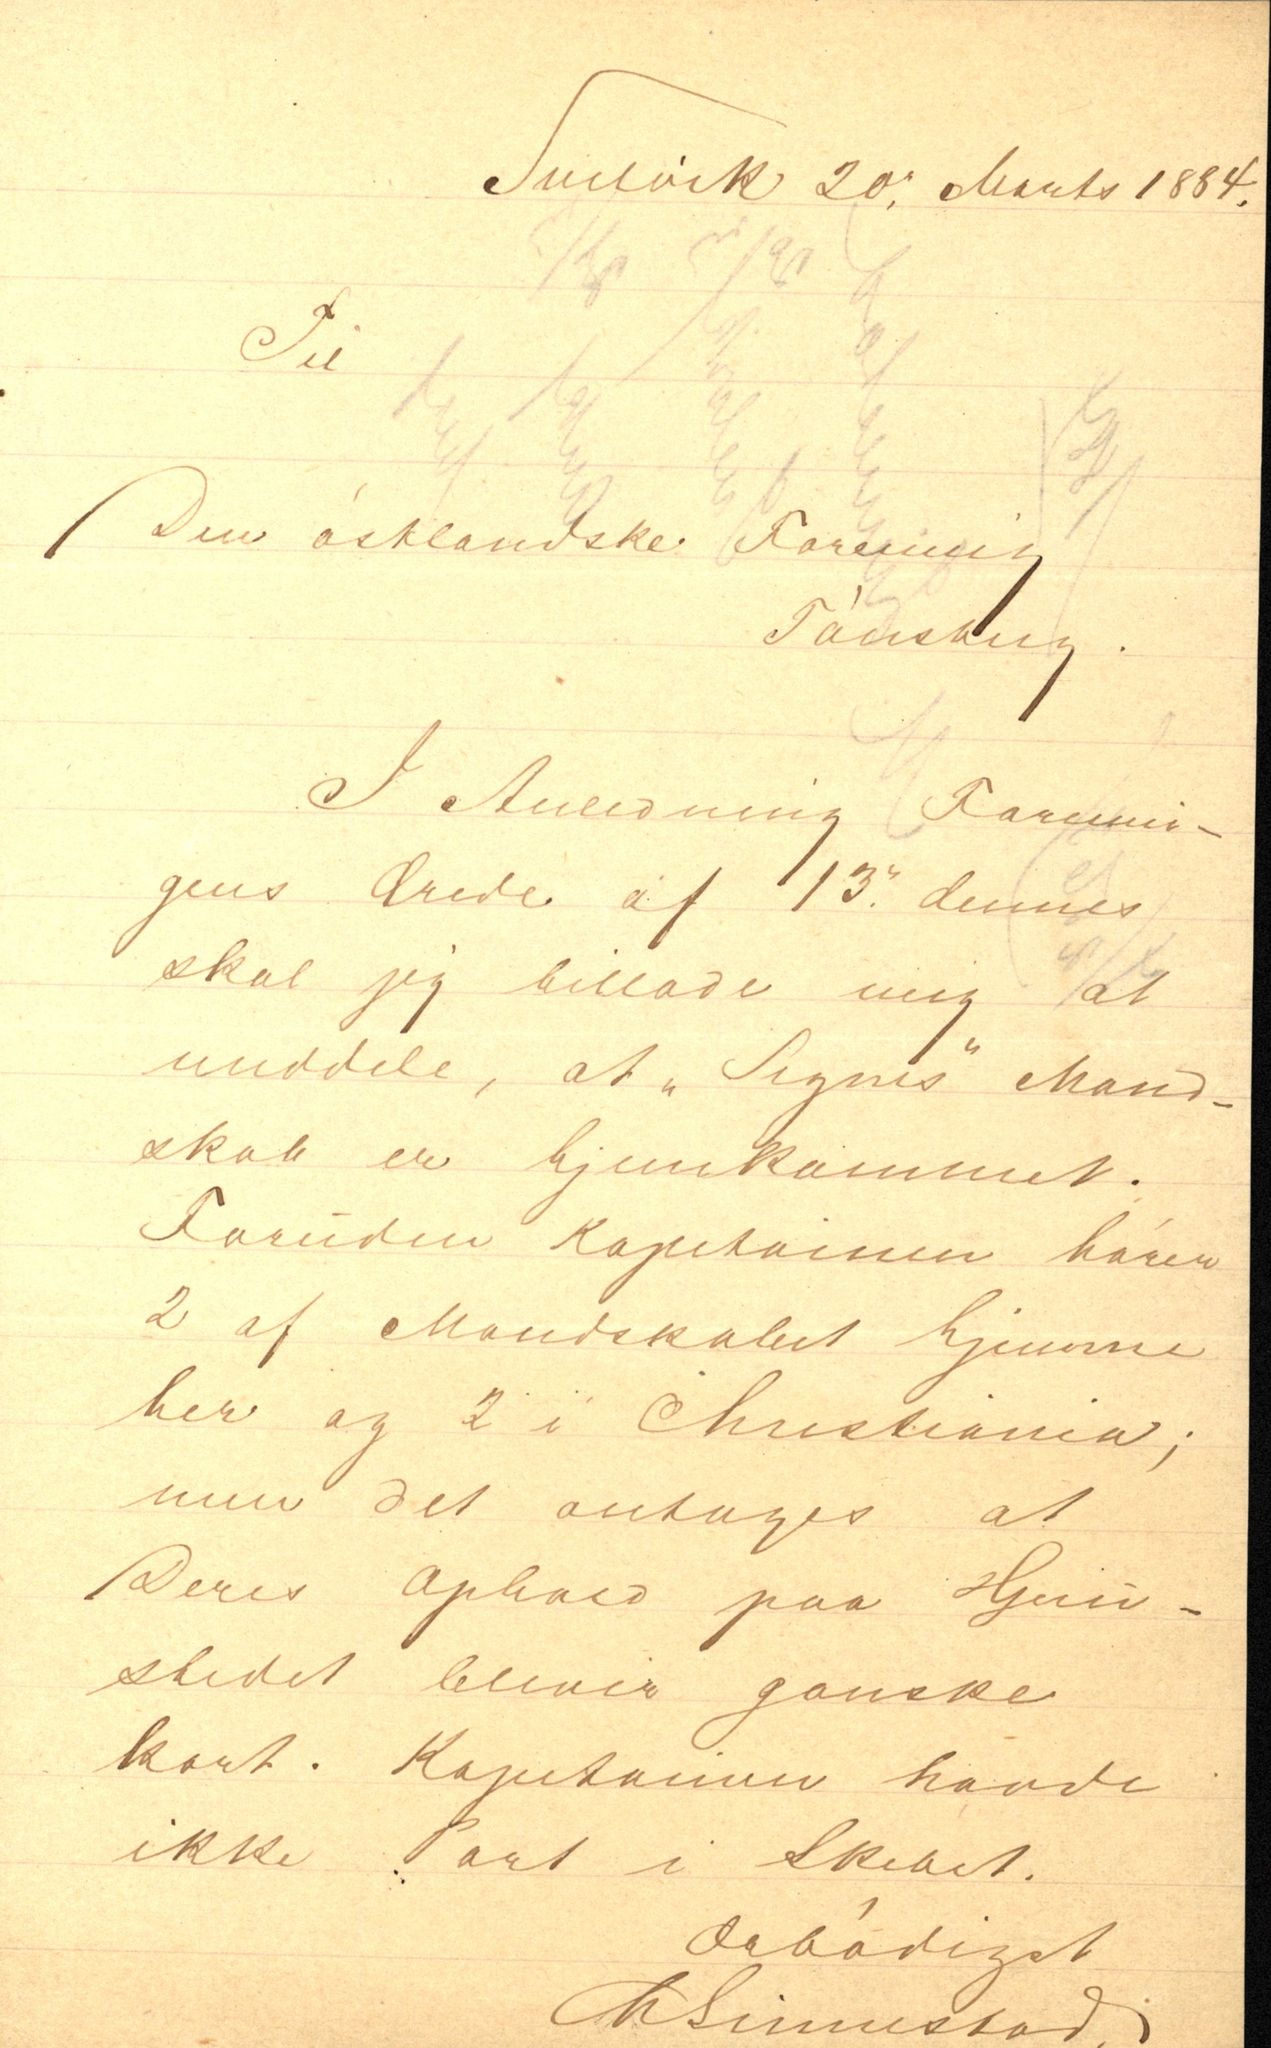 Svelvik 20. Marts 1884.
Til
Den östlandske Forening
Tönsberg.
I Anledning Foreni-
gens Ærede af 13. dennes
skal jeg tillade mig at
meddele, at "Signes" Mand-
skab er hjemkommet.
Foruden Kapitainen hörer
2 af Mandskabet hjemme
her og 2 i Christiania;
men det antages at
Deres Ophold paa Hjem-
stedet blever ganske
kort. Kapitainen havde
ikke Part i Skibet.
Ærbödigst